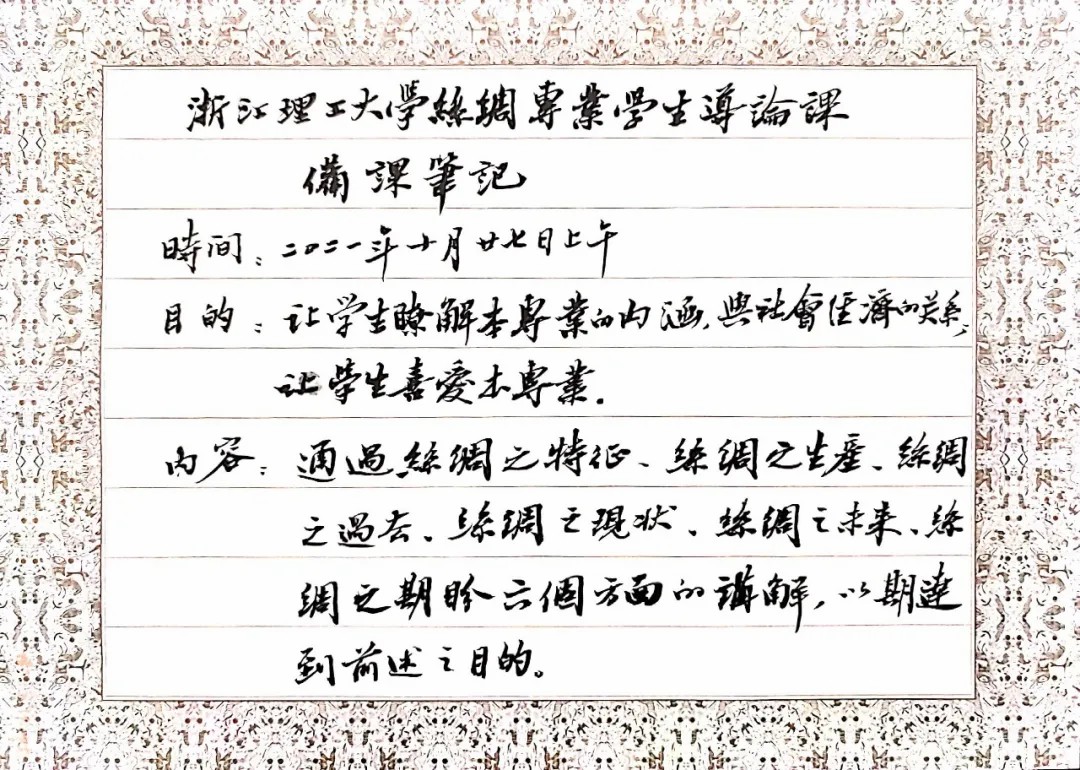 浙江理工大學絲綢專業學生導論課
備課筆記
時间：二〇二一年十月廿七日上午
目的：让学生瞭解本專業的内涵，與社會経濟的关系，
让學生喜愛本專業.
内容：通過絲綢之特征、絲綢之生産、絲綢
之過去、絲綢之現状、絲綢之未来、絲
綢之期盼六個方面的講解，以期達
到前述之目的。